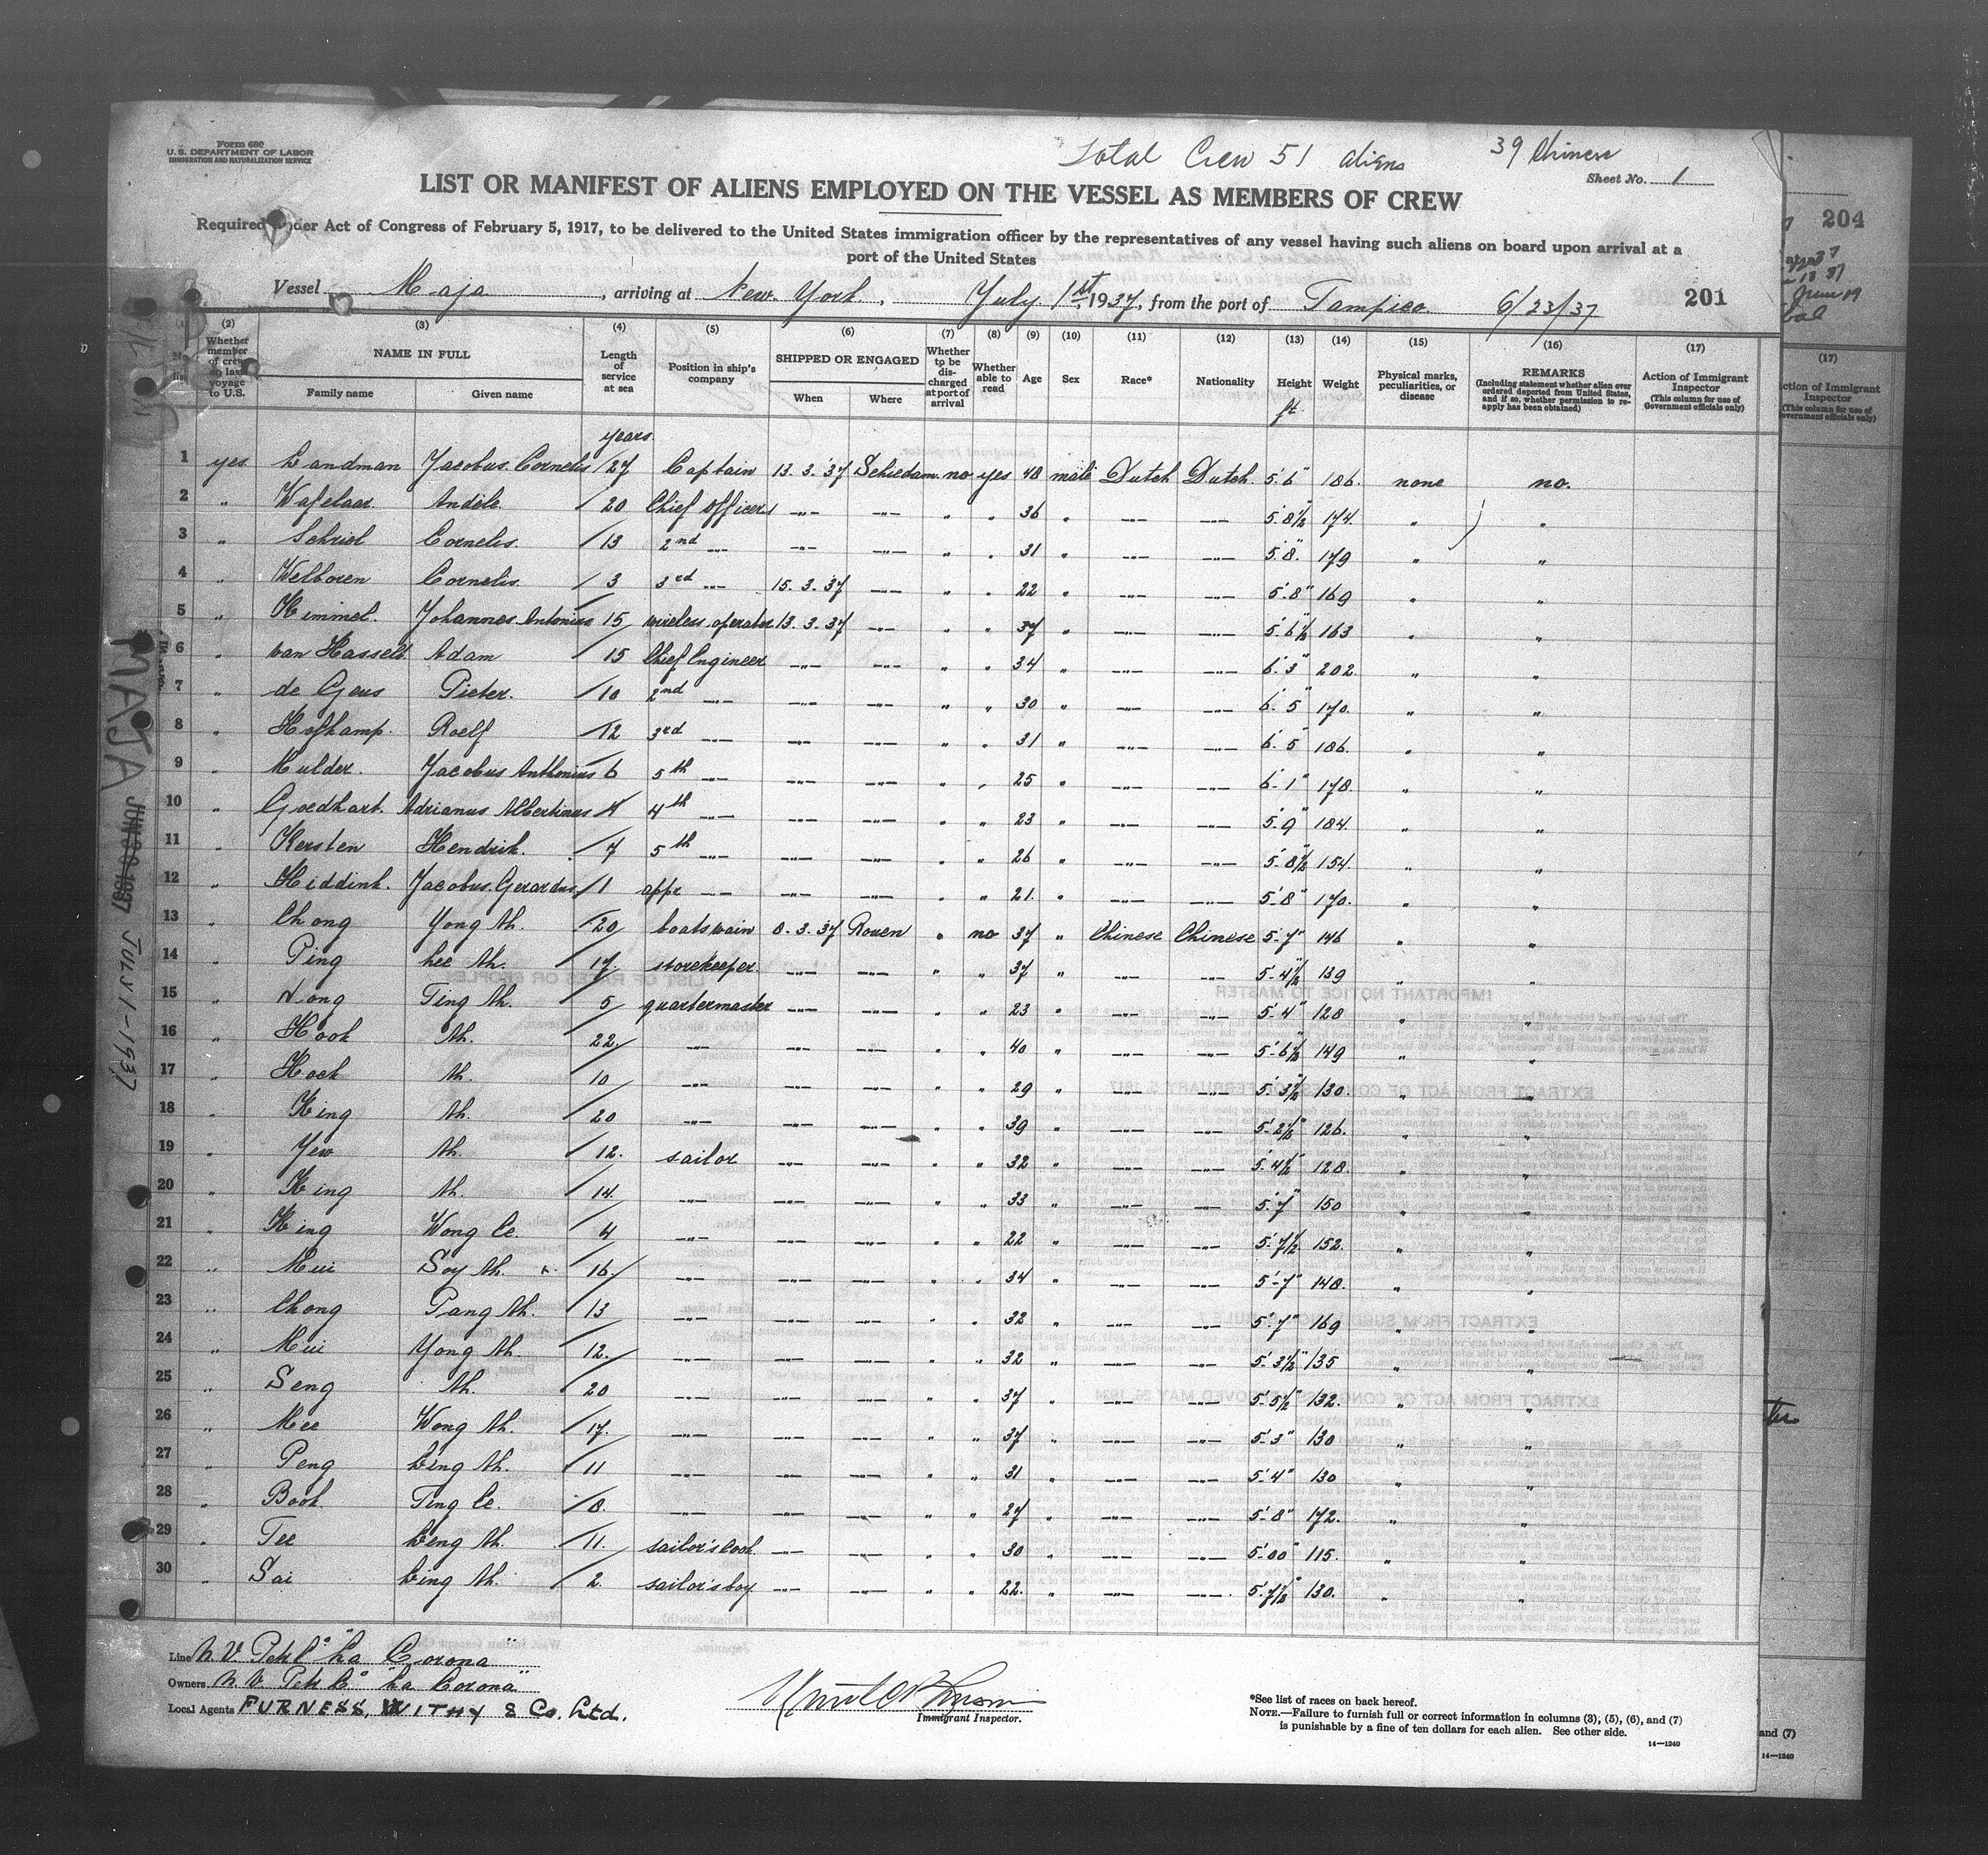 Form 680
U.S. DEPARTMENT OF LABOR
IMMIGRATION AND NATURALIZATION SERVICE
Total Crew 51 aliens 39 Chinese
Sheet No. 1
LIST OR MANIFEST OF ALIENS EMPLOYED ON THE VESSEL AS MEMBERS OF CREW
Required under Act of Congress of February 5, 1917, to be delivered to the United States immigration officer by the representatives of any vessel having such aliens on board upon arrival at a
port of the United States
Vessel Maja, arriving at New York, July 1st, 1937, from the port of Tampico. 6/23/37 201
(2) (3) (4) (5) (6) (7) (8) (9) (10) (11) (12) (13) (14) (15) (16) (17)
Whether member of crew on last voyage to U.S. NAME IN FULL Family name Given name Length of service at sea Position in ship's company SHIPPED OR ENGAGED When Where Whether to be discharged at port of arrival Whether able to read Age Sex Race* Nationality Height Weight Physical marks, peculiarities, or disease REMARKS (Including statement whether alien ever ordered deported from United States, and if so, whether permission to reapply has been obtained) Action of Immigrant Inspector (This column for use of Government officials only)
years ft.
1 yes Landman Jacobus Cornelis 27 Captain 13.3.'37 Schiedam no yes 48 male Dutch Dutch 5'6" 186 none no.
2 " Wafelaar Andele 20 Chief Officer —"— —"— " " 36 " —"— —"— 5'8½ 174 " "
3 " Schriel Cornelis. 13 2nd —"— —"— —"— " " 31 " —"— —"— 5'8" 179 " "
4 " Welboren Cornelis 3 3rd —"— 15.3.37 —"— " " 22 " —"— —"— 5'8" 169 " "
5 " Himmel. Johannes Antonius 15 wireless operator 13.3.37 —"— " " 37 " —"— —"— 5'6½ 163 " "
6 " van Hasselt Adam 15 Chief Engineer —"— —"— " " 34 " —"— —"— 6'3" 202 " "
7 " de Geus Pieter. 10 2nd —"— —"— —"— " " 30 " —"— —"— 6'5" 170 " "
8 " Hofkamp. Roelf 12 3rd —"— —"— —"— " " 31 " —"— —"— 6'5" 186 " "
9 " Mulder. Jacobus Anthonius 6 5th —"— —"— —"— " " 25 " —"— —"— 6'1" 178 " "
10 " Goedhart. Adrianus Albertinus 4 4th —"— —"— —"— " " 23 " —"— —"— 5'9" 184 " "
11 " Kersten Hendrik. 7 5th —"— —"— —"— " " 26 " —"— —"— 5'8½ 154 " "
12 " Hiddink. Jacobus Gerardus 1 appr —"— —"— —"— " " 21 " —"— —"— 5'8" 170 " "
13 " Chong Yong Ah. 20 boatswain 8.3.37 Rouen " no 37 " Chinese Chinese 5'7" 146 " "
14 " Ping Lee Ah. 17 storekeeper —"— —"— " " 37 " —"— —"— 5'4½ 139 " "
15 " Ting Ah. 5 quartermaster —"— —"— " " 23 " —"— —"— 5'4" 128 " "
16 " Hook Ah. 22 —"— —"— —"— " " 40 " —"— —"— 5'6½ 149 " "
17 " Hock Ah. 10 —"— —"— —"— " " 29 " —"— —"— 5'3½ 130 " "
18 " King Ah. 20 —"— —"— —"— " " 39 " —"— —"— 5'2½ 126 " "
19 " Yew Ah. 12 sailor —"— —"— " " 32 " —"— —"— 5'4½ 128 " "
20 " King Ah. 14 —"— —"— —"— " " 33 " —"— —"— 5'7" 150 " "
21 " King Wong Ce. 4 —"— —"— —"— " " 22 " —"— —"— 5'7½ 152 " "
22 " Mui Soy Ah. 16 —"— —"— —"— " " 34 " —"— —"— 5'7" 148 " "
23 " Chong Pang Ah. 13 —"— —"— —"— " " 32 " —"— —"— 5'7" 169 " "
24 " Mui Yong Ah. 12 —"— —"— —"— " " 32 " —"— —"— 5'3½ 135 " "
25 " Seng Ah. 20 —"— —"— —"— " " 37 " —"— —"— 5'5½" 132 " "
26 " Mee Wong Ah. 17 —"— —"— —"— " " 37 " —"— —"— 5'3" 130 " "
27 " Peng Leng Ah. 11 —"— —"— —"— " " 31 " —"— —"— 5'4" 130 " "
28 " Book Ting Ce. 8 —"— —"— —"— " " 27 " —"— —"— 5'8" 172 " "
29 " Tee Leng Ah. 11 sailor's cook —"— —"— " " 30 " —"— —"— 5'00" 115 " "
30 " Sai Ling Ah. 2 sailor's boy —"— —"— " " 22 " —"— —"— 5'7½ 130 " "
Line N.V. Petr Co "La Corona"
Owners N.V. Petr Co "La Corona"
Local Agents FURNESS, WITHY & Co. Ltd.
Immigrant Inspector.
*See list of races on back hereof.
NOTE.—Failure to furnish full or correct information in columns (3), (5), (6), and (7)
is punishable by a fine of ten dollars for each alien. See other side.
14—1240
MAJA JUN 30 1937 JULY 1-1937
204
(17)
Action of Immigrant Inspector
(This column for use of Government officials only)
and (7)
14—1240